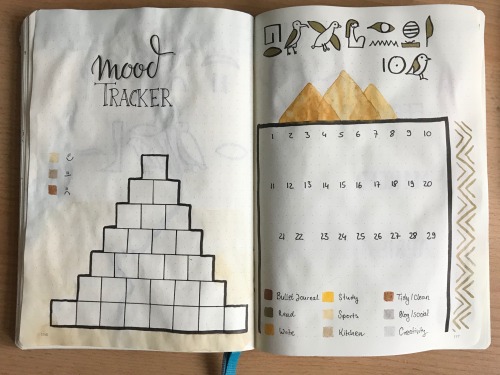 mood
TRACKER
1 2 3 4 5 6 7 8 9 10
11 12 13 14 15 16 17 18 19 20
21 22 23 24 25 26 27 28 29
Bullet Journal Study Tidy/Clean
Read Sports Blog/social
Write Kitchen Creativity